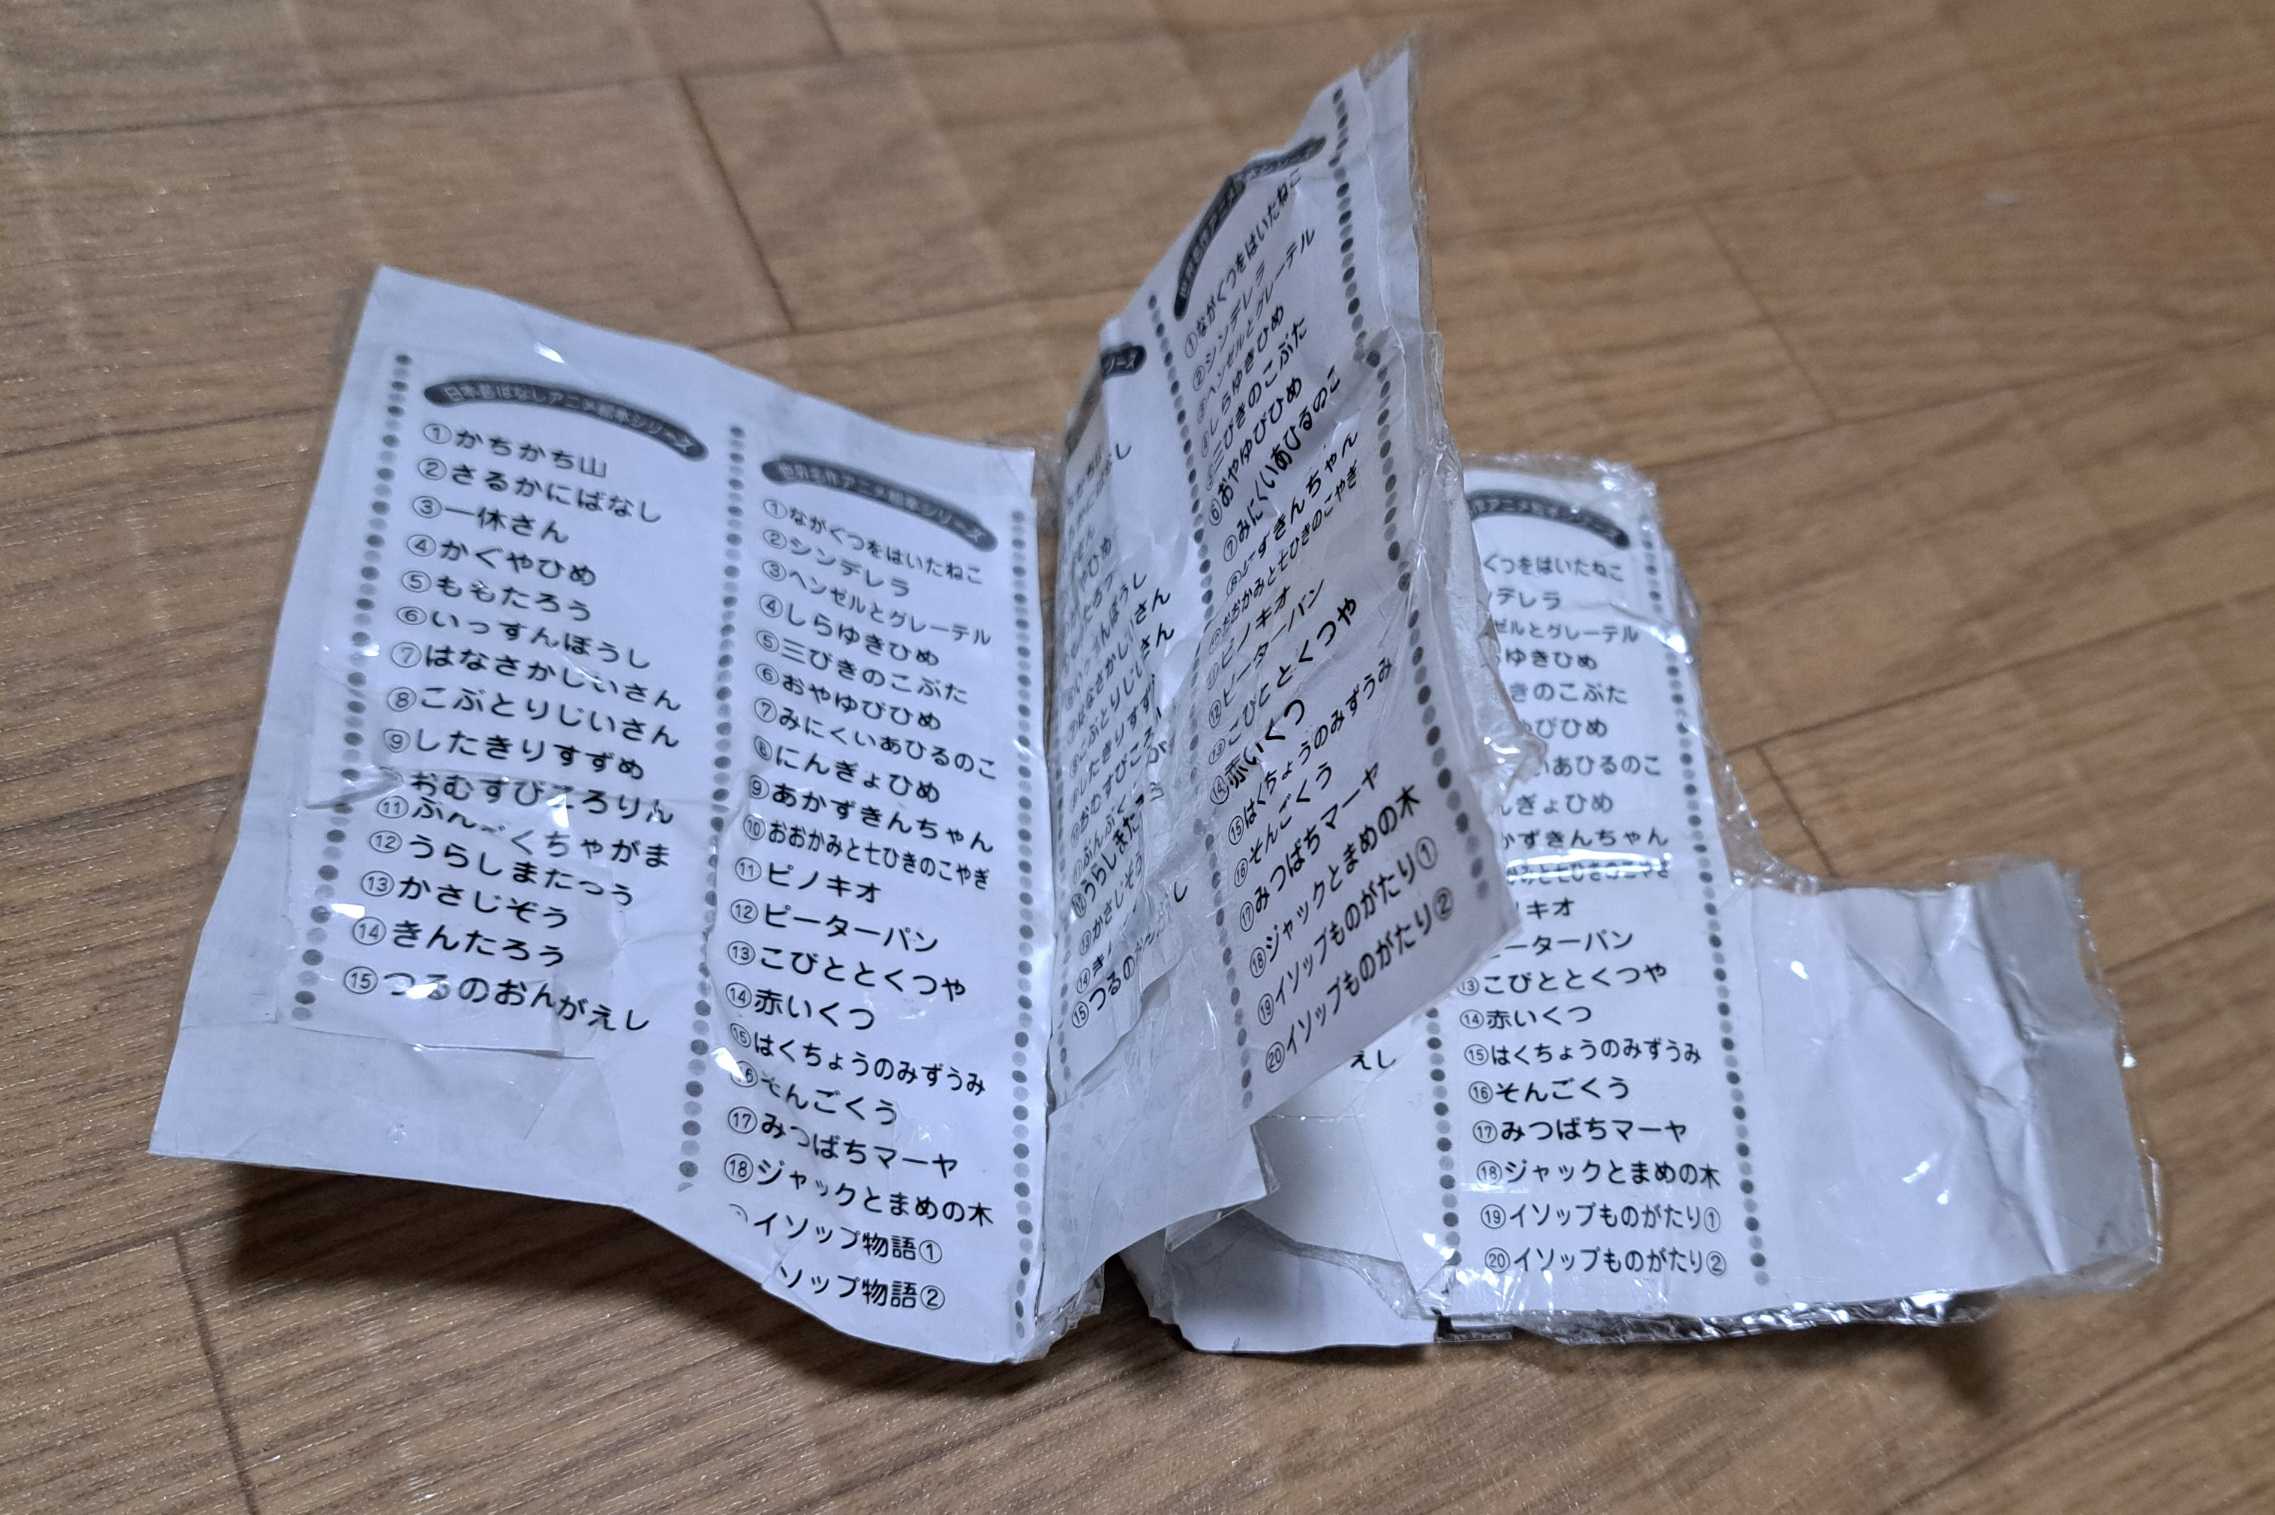 日本昔ばなしアニメ絵本シリーズ
①かちかち山
②さるかにばなし
③一休さん
④かぐやひめ
⑤ももたろう
⑥いっすんぼうし
⑦はなさかじいさん
⑧こぶとりじいさん
⑨したきりすずめ
おむすびころりん
⑪ぶんぶくちゃがま
⑫うらしまたろう
⑬かさじぞう
⑭きんたろう
⑮つるのおんがえし
世界名作アニメ絵本シリーズ
①ながぐつをはいたねこ
②シンデレラ
③ヘンゼルとグレーテル
④しらゆきひめ
⑤三びきのこぶた
⑥おやゆびひめ
⑦みにくいあひるのこ
⑧にんぎょひめ
⑨あかずきんちゃん
⑩おおかみと七ひきのこやぎ
⑪ピノキオ
⑫ピーターパン
⑬こびととくつや
⑭赤いくつ
⑮はくちょうのみずうみ
⑯そんごくう
⑰みつばちマーヤ
⑱ジャックとまめの木
イソップ物語①
ソップ物語②
リーズ
⑫うらしまた
⑬かさじぞう
⑮つるの
①ながぐつをはいたねこ
②シンデレラ
③ヘンゼルとグレーテル
④しらゆきひめ
⑤三びきのこぶた
⑥おやゆびひめ
⑦みにくいあひるのこ
ずきんちゃん
おおかみと七ひきのこやぎ
ピノキオ
⑫ピーターパン
⑬こびととくつや
⑭赤いくつ
⑮はくちょうのみずうみ
⑯そんごくう
⑰みつばちマーヤ
⑱ジャックとまめの木
⑲イソップものがたり①
⑳イソップものがたり②
えし
ぐつをはいたねこ
ンデレラ
ゼルとグレーテル
ゆきひめ
きのこぶた
ゆびひめ
いあひるのこ
んぎょひめ
かずきんちゃん
かみと七ひきのこやぎ
ノキオ
ーターパン
⑬こびととくつや
⑭赤いくつ
⑮はくちょうのみずうみ
⑯そんごくう
⑰みつばちマーヤ
⑱ジャックとまめの木
⑲イソップものがたり①
⑳イソップものがたり②